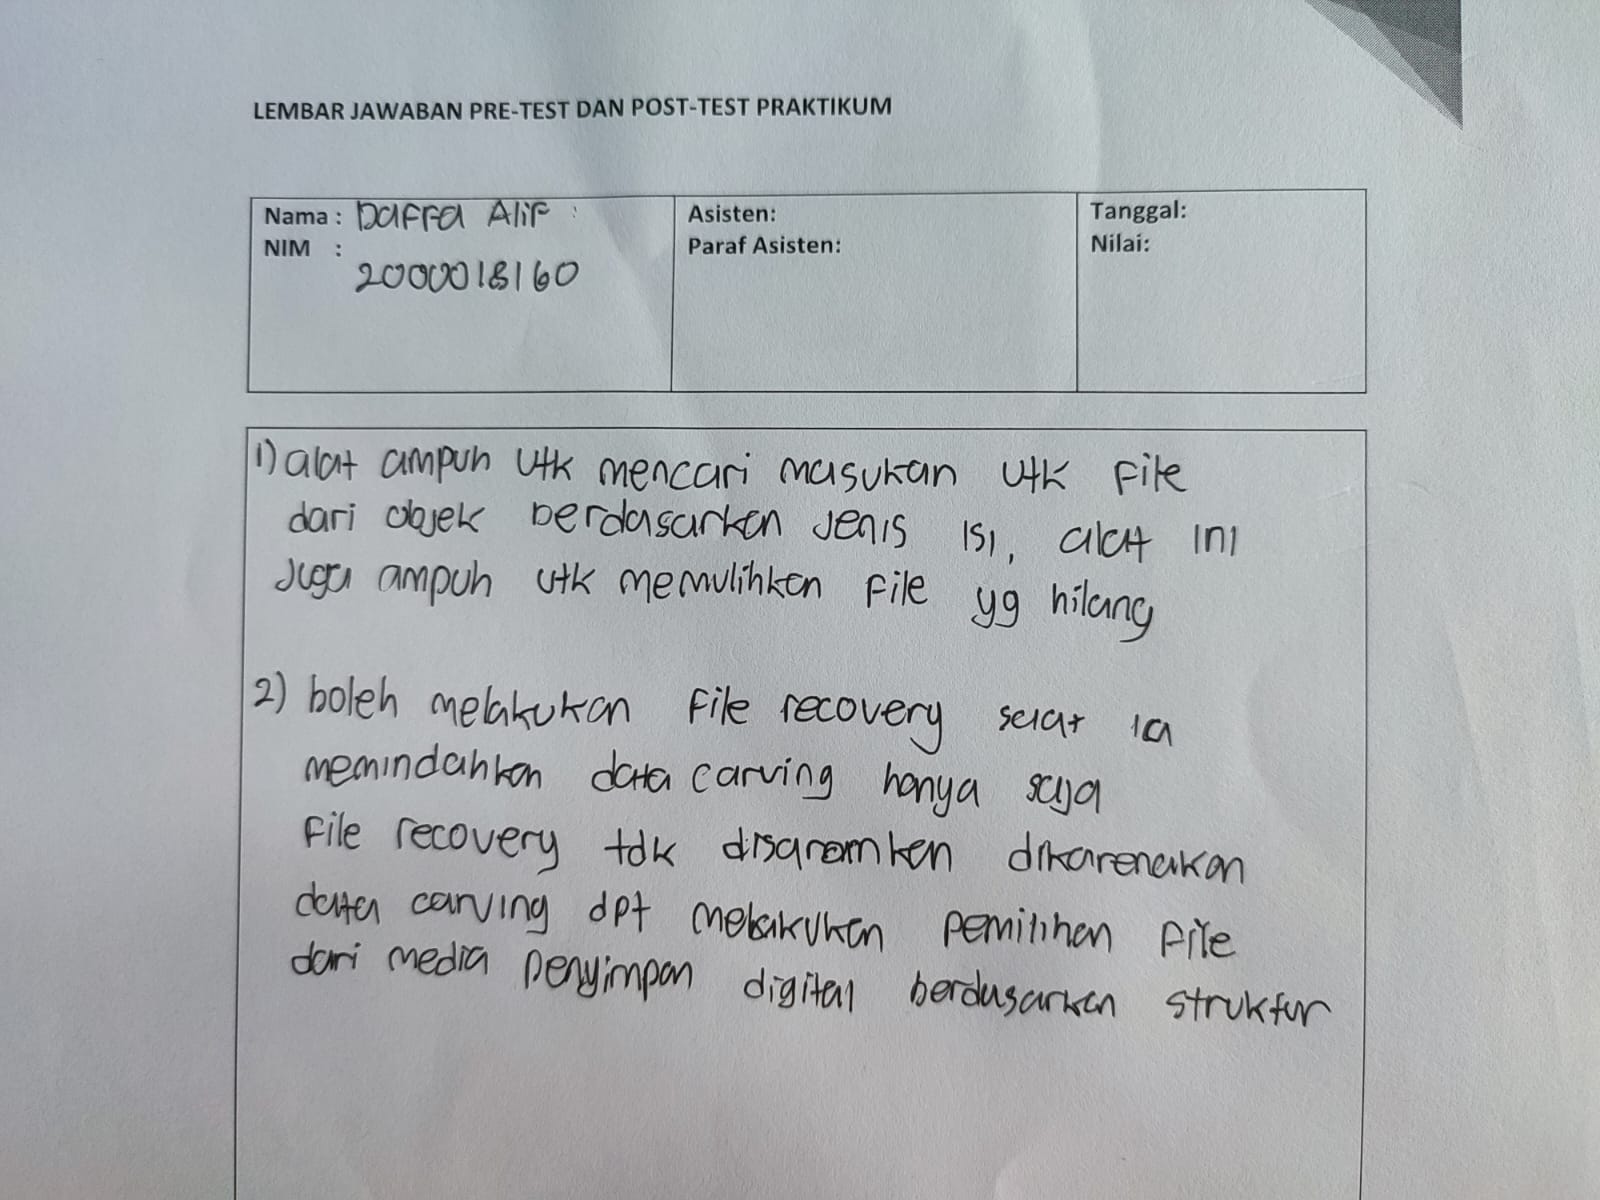 LEMBAR JAWABAN PRE-TEST DAN POST-TEST PRAKTIKUM
Nama : Daffa Alif
NIM :
2000018160
Asisten:
Paraf Asisten:
Tanggal:
Nilai:
1) alat ampuh utk mencari masukan utk file
dari objek berdasarkan jenis isi, alat ini
Juga ampuh utk memulihkan file yg hilang
2) boleh melakukan file recovery selat ia
memindahkan data carving hanya saja
file recovery tdk disarankan dikarenakan
data carving dpt melakukan pemilihan file
dari media penyimpan digital berdasarkan struktur